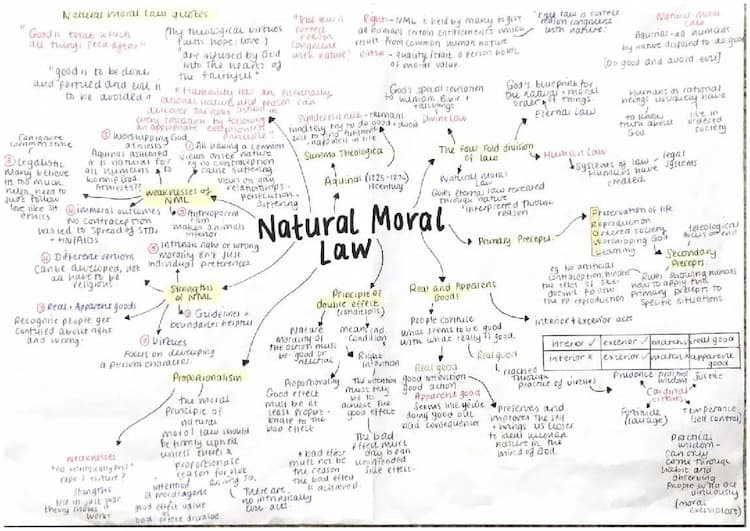 Natural moral law quotes
"Good is that which
all things seek after"
"good is to be done
and persued and evil is
to be avoided"
The theological virtues
(faith, hope, love)
are infused by God
into the hearts of
the faithful
"true law is
correct
reason
congruent
with nature"
"Humanity has an essentially
rational nature and reason can
discover the right action in
every situation by following
an appropriate exceptionless
principle"
Right - NML is held by many to give
all humans certain entitlements which
result from common human nature
Virtue - quality/trait a person holds
of moral value.
"true law is correct
reason congruent
with nature"
Natural Moral
Law
Aquinas - all humans
by nature disposed to do good
(Do good and avoid evil)
Humans as rational
beings uniquely have
to know
truth about
God
live in
ordered
society
Synderesis rule - Humans
innately try to do good + avoid
evil to find fulfilment +
happiness in life
Summa Theologica
Aquinas (1225-1274)
13century
God's special revelation
to humans Bible +
teachings
Divine Law
God's blueprint for
the natural + moral
order of things.
Eternal Law
The Four Fold division
of law
Human Law
Systems of law - legal
humans have systems
created.
Natural Moral
Law
God's eternal law revealed
through nature
interpreted through
reason
Natural Moral
Law
Weaknesses of
NML
① All having a common
view on one's nature
eg no contraception
cause suffering
views on gay
relationships -
persecution,
suffering
② Worshipping God
atheists?
Aquinas assumed
it is natural for
all humans to
worship God.
Atheists??
Can ignore
common sense
③ Legalistic
Many believe
its too much
rules, need to
just follow
love like Jesus
④ immoral outcomes
No contraception
can lead to spread of STDs
+ HIV/AIDS
⑤ Anthropocentrism
makes animals
inferior
Strengths
of NML
① Intrinsic right or wrong
morality isn't just
individual preferences.
② Guidelines +
boundaries helpful
③ Virtues
Focus on developing
a persons character.
③ Real + Apparent goods
Recognise people get
confused about right
and wrong.
④ Different versions
Can be developed, not
all have to be
religious
Primary Precepts
Preservation of life
Reproduction
Ordered society
Worshipping God
Learning
teleological
focus on end
Secondary
Precepts.
Rules showing humans
how to apply the
Primary precepts to
specific situations
eg No artificial
contraception, hinders
the telos of sex -
doesn't follow
the PP reproduction
Proportionalism
the moral
principle of
natural
moral law should
be firmly upheld
unless there's a
proportionate
reason for not
doing so.
There are
no intrinsically
evil acts.
intention
of moral agent
good effect value
bad effect disvalue
Weaknesses
"no intrinsically evil"
rape? torture?
Strengths
Use in just war
theory shows it
works
Principle of
double effect
(conditions)
Nature
Morality of
the action must
be good or
neutral
means end
condition
Right
intention
The intention
must only
be to
achieve the
good effect
The bad
effect must
only be an
unintended
side effect.
Proportionality
Good effect
must be at
least propor-
tionate to
the bad effect
bad effect
must not be
the reason
the bad effect
is achieved.
Real and Apparent
Goods
People confuse
what seems to be good
with what really is good.
Interior + exterior acts
interior ✓ | exterior ✓ | match ✓ | real good
interior ✗ | exterior ✓ | match ✗ | apparent good
Real good
good intention
good action
Apparent good
Seems like you're
doing good but
bad consequences
Real good
reached
through
practice of virtues
Preserves and
improves the self
+ brings us closer
to ideal human
nature in the
mind of God.
Cardinal
virtues
Prudence practical
wisdom
Justice
Fortitude
(courage)
Temperance
(self control)
Practical
wisdom -
Can only
come through
habit and
observing
people who act
virtuously
(moral
exemplars)